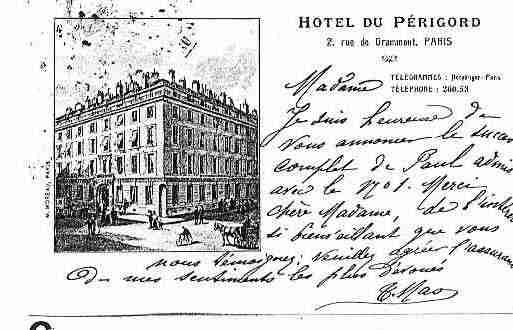 HOTEL DU PÉRIGORD
2, rue de Grammont, PARIS
TÉLÉGRAMMES : -Paris
TÉLÉPHONE : 260.53
Madame
Je suis heureuse de
vous annoncer le succès
complet de Paul admis
avec le 1701. Merci
chère Madame, de l'intérê
si bienveillant que vous
nous témoignez; veuillez agréer l'assuran
de mes sentiments les plus dévoués
M. MOREAU, PARIS